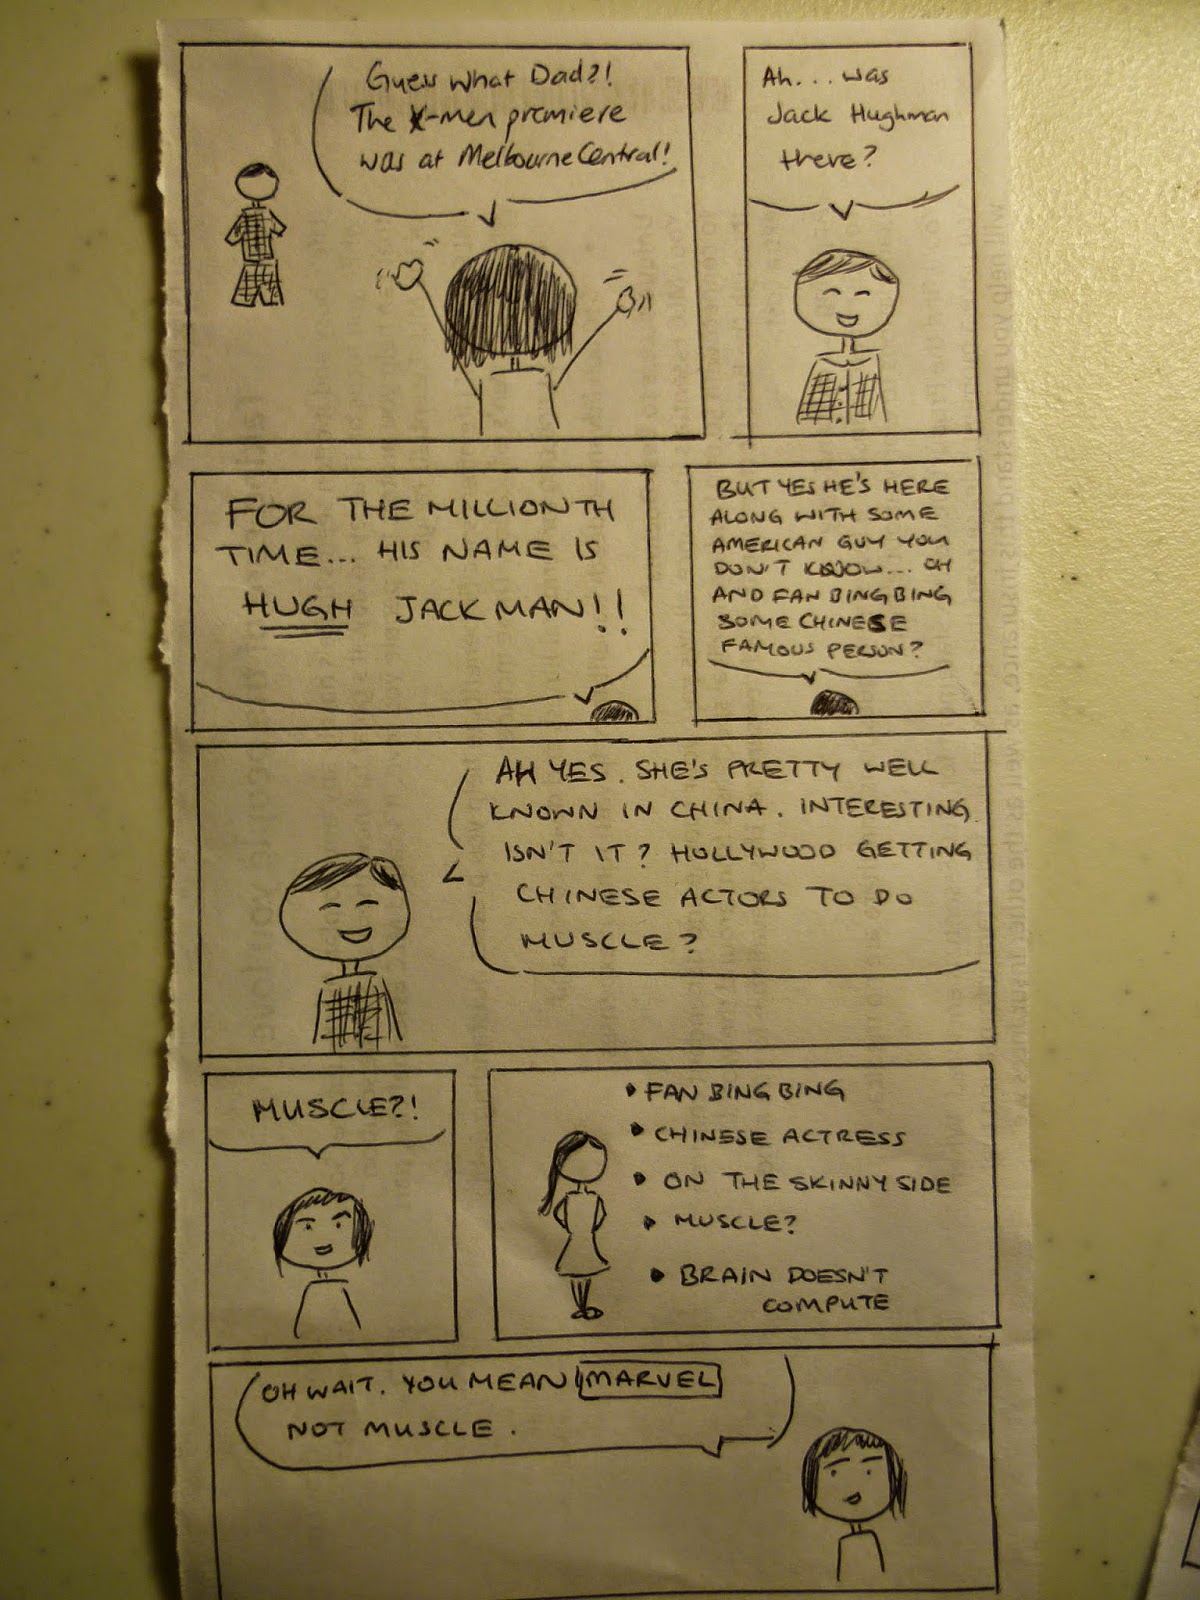 Guess what Dad?!
The X-men premiere
was at Melbourne Central!
Ah... was
Jack Hughman
there?
FOR THE MILLIONTH
TIME... HIS NAME IS
HUGH JACKMAN!!
BUT YES HE'S HERE
ALONG WITH SOME
AMERICAN GUY YOU
DON'T KNOW... OH
AND FAN BINGBING
SOME CHINESE
FAMOUS PERSON?
AH YES. SHE'S PRETTY WELL
KNOWN IN CHINA. INTERESTING
ISN'T IT? HOLLYWOOD GETTING
CHINESE ACTORS TO DO
MUSCLE?
MUSCLE?!
• FAN BINGBING
• CHINESE ACTRESS
• ON THE SKINNY SIDE
• MUSCLE?
• BRAIN DOESN'T
COMPUTE
OH WAIT. YOU MEAN MARVEL
NOT MUSCLE.